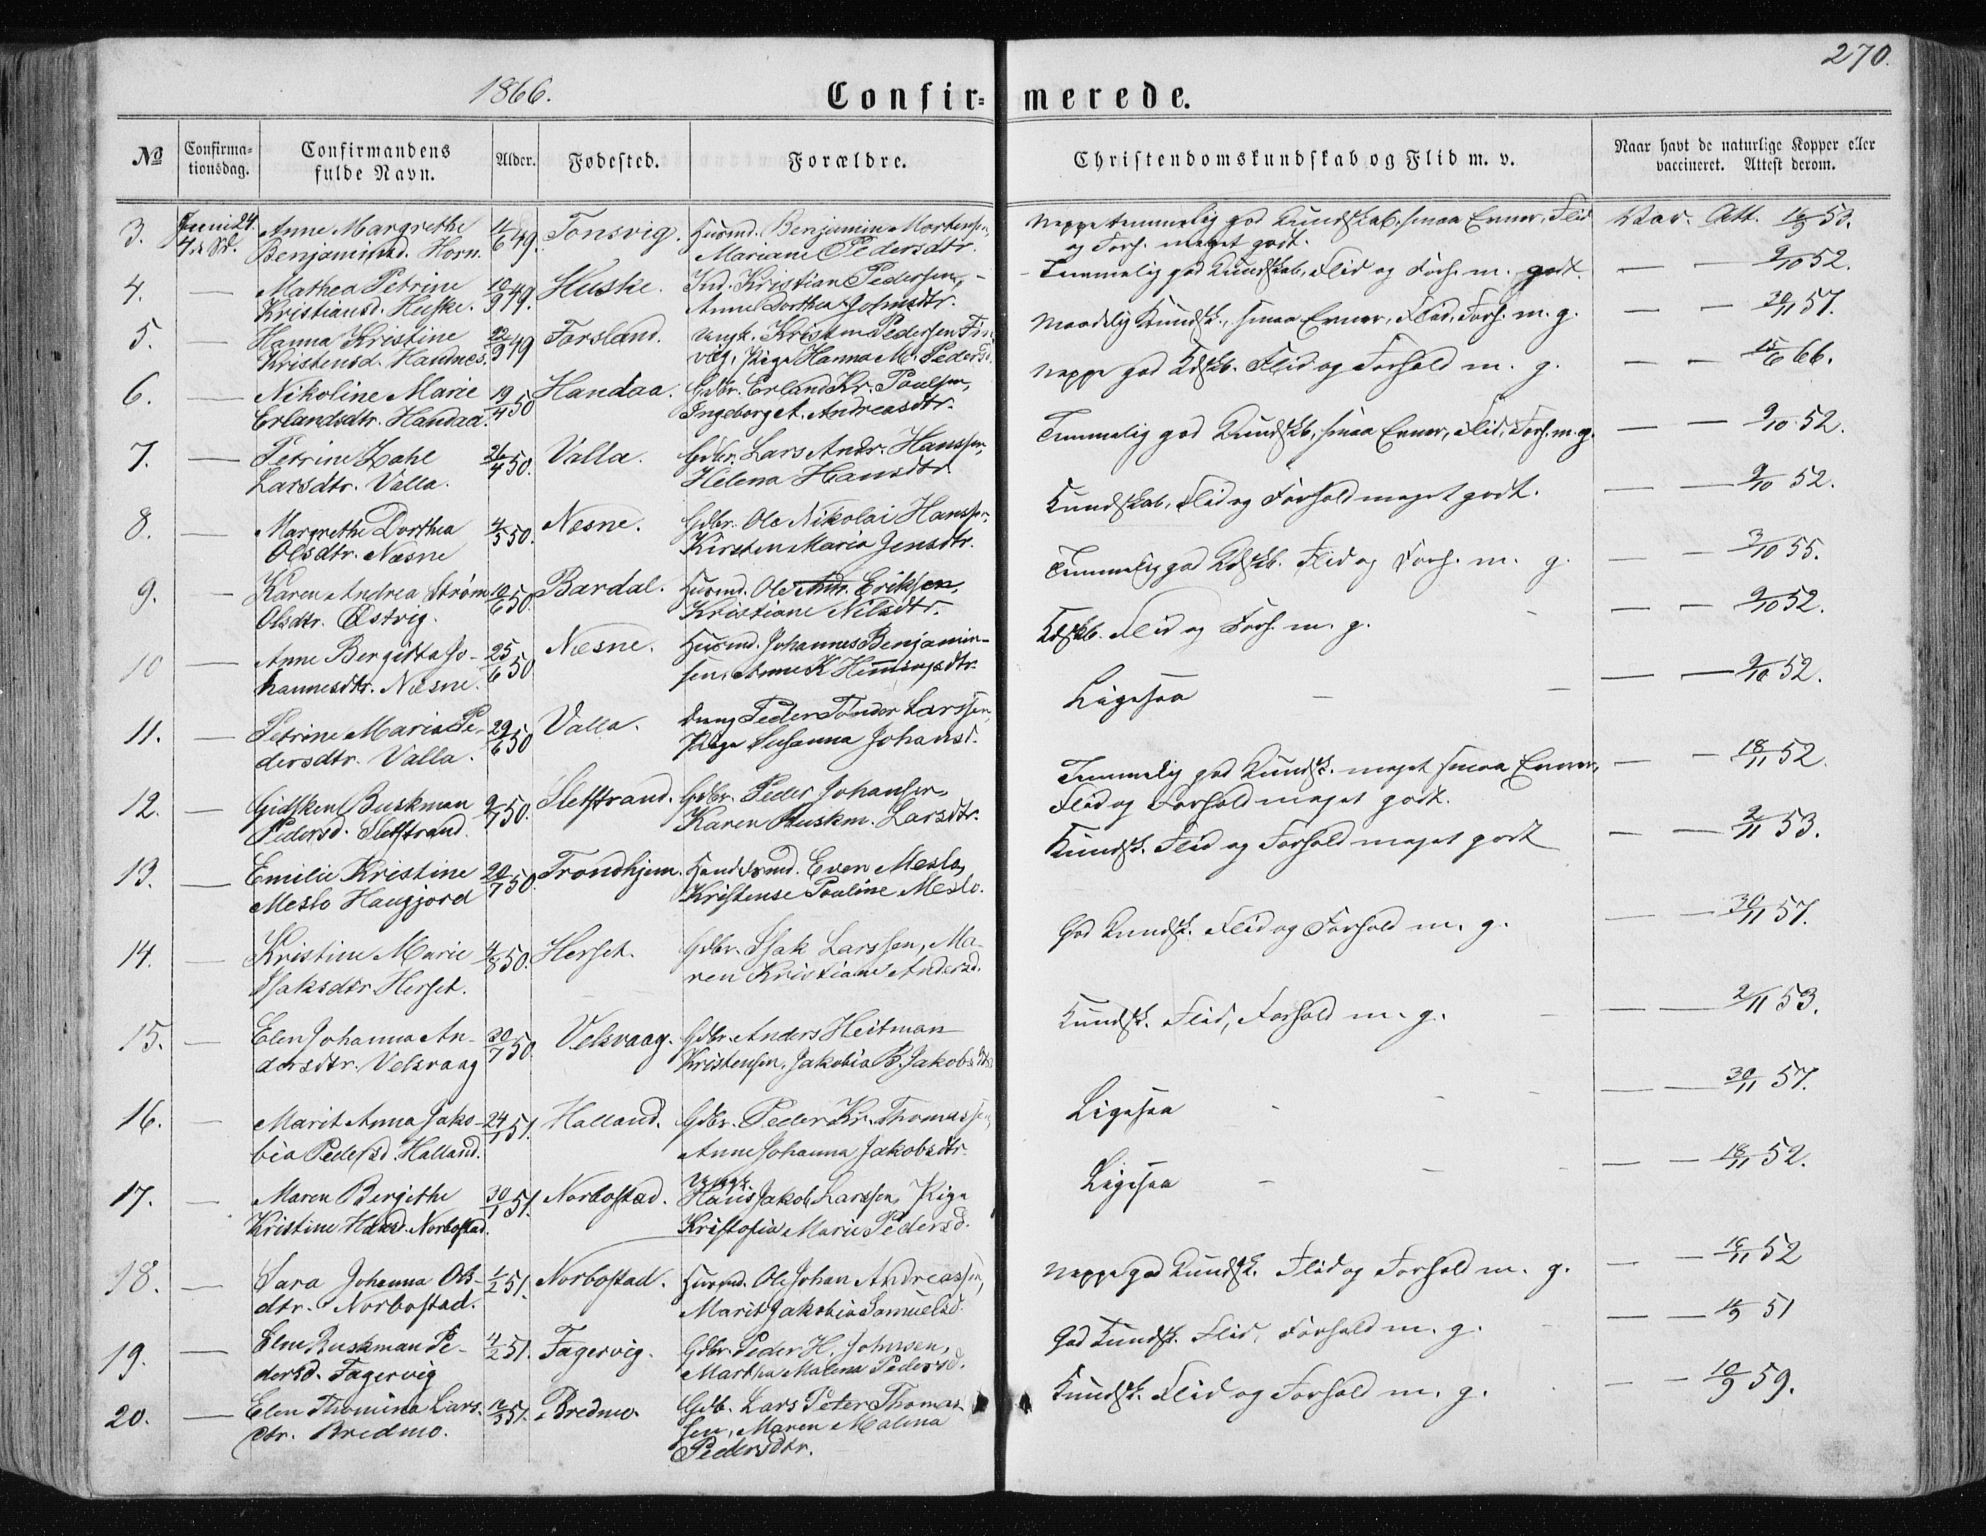 270.
1866.
Confir= merede.
No
Confirmationsdag.
Confirmandens fulde Navn.
Alder.
Fødested.
Forældre.
Christendomskundskab og Flid m. v.
Naar havt de naturlige Kopper eller vaccineret. Attest derom.
3. Juni 24. 4de Sd. Anne Margrethe 11/6 49. Tonsvig. Husmd. Benjamin Mortensen, Neppe temmelig god Kundskab, smaa Evner, Flid Vac. Att. 53.
Benjaminsd. Horn. Mariane Pedersdtr. og Forh. meget godt.
4. — Mathea Petrine 10/9 49. Huske. Ind. Kristian Pedersen, Temmelig god Kundskab, Flid og Forh. m. godt. — — 9/10 52.
Kristiansd. Huske. Anne Dorthea Johnsdtr.
5. — Hanna Kristine 22/9 49 Forsland. Ungk. Kristen Pedersen Fin- Maadelig Kundsk., smaa Evner, Flid, Forh. m. g. — — 57.
Kristensd. Handnes. vig, Pige Hanna M. Pedersd.
6. — Nikoline Marie 19/4 50 Handaa. Gdbr. Erland Kr. Poulsen, Neppe god Kdskb. Flid og Forhold m. g. — — 15/6 66.
Erlandsdtr. Handaa. Ingeborg A. Andreasdtr.
7. — Petrine Zahl 26/4 50. Valla. Gdbr. Lars Andr. Hanssen, Temmelig god Kundskb, smaa Evner, Flid, Forh. m. g. — — 9/10 52.
Larsdtr. Valla. Helena Hansdtr.
8. — Margrethe Dorthea 4/5 50. Nesne. Gdbr. Ole Nikolai Hanssen, Kundskab, Flid og Forhold meget godt. — — 9/10 52.
Olsdtr. Nesne Kirsten Maria Jensdtr.
9. — Karen Andrea Strøm 12/6 50. Bardal. Husmd. Ole Andr. Eriksen, Temmelig god Kdskb. Flid og Forh. m. g. — — 3/10 55.
Olsdtr. Østvig. Kristiane Nilsdtr.
10 — Anne Bergitta Jo- 25/6 50 Nesne. Husmd. Johannes Benjamin- Kdskb. Flid og Forh. m. g. — — 9/10 52.
hannesdtr. Nesne. sen, Anne K Henningsdtr.
11. — Petrine Maria Pe- 29/6 50 Valla. Ung Peder Tønder Larssen, Ligesaa — — 9/10 52.
dersdtr. Valla. Pige Susanna Johansd.
12. — Gidsken Buskman 9/7 50. Sletstrand. Gdbr. Peder Johansen, Temmelig god Kundsk. meget smaa Evner, — — 18/11 52.
Pedersd. Sletstrand. Karen Buskm. Larsdtr. Flid og Forhold meget godt.
13. — Emilie Kristine 20/7 50. Trondhjem. Even Meslo, Kundsk. Flid og Forhold meget godt — — 2/11 53.
Meslo Haugjord Kristense Pauline Meslo.
14. — Kristine Marie 4/8 50. Herset. Gdbr. Isak Larssen, Ma- God Kundsk. Flid og Forhold m. g. — — 30/11 57.
Isaksdtr Herset. ren Kristiane Andersd.
15. — Elen Johanna An- 30/7 50. Velsvaag. Gdbr. Anders Heitman Kundsk. Flid, Forhold m. g. — — 2/11 53.
dersdtr. Velsvaag Kristensen, Jakobia B. Jakobsdtr
16. — Marit Anna Jako- 24/1 51. Halland. Gdbr. Peder Kr. Thomassen, Ligesaa — — 30/11 57.
bia Pedersd. Halland. Anne Johanna Jakobsdtr.
17. — Maren Bergithe 30/1 51. Norbostad. Ungk. Hans Jakob Larssen, Pige Ligesaa — — 18/11 52.
Kristine Hansd. Norbostad. Kristofia Marie Pedersd.
18. — Sara Johanna Ols- 1/2 51. Norbostad. Husmd. Ole Johan Andreassen, Neppe god Kundsk. Flid og Forhold m. g. — — 18/11 52
dtr. Norbostad. Marit Jakobia Samuelsd.
19. — Elen Buskman Pe- 4/2 51. Fagervig. Gdbr. Peder H. Johnsen, God Kundsk. Flid, Forhold m. g. — — 51
dersd. Fagervig Martha Malena Pedersd.
20. — Elen Thomina Lars- 12/3 51. Bredmo. Gdb. Lars Peter Thomas- Kundsk. Flid og Forhold m. g. — — 10/9 59.
dtr. Bredmo. sen, Maren Malena
Pedersdtr.